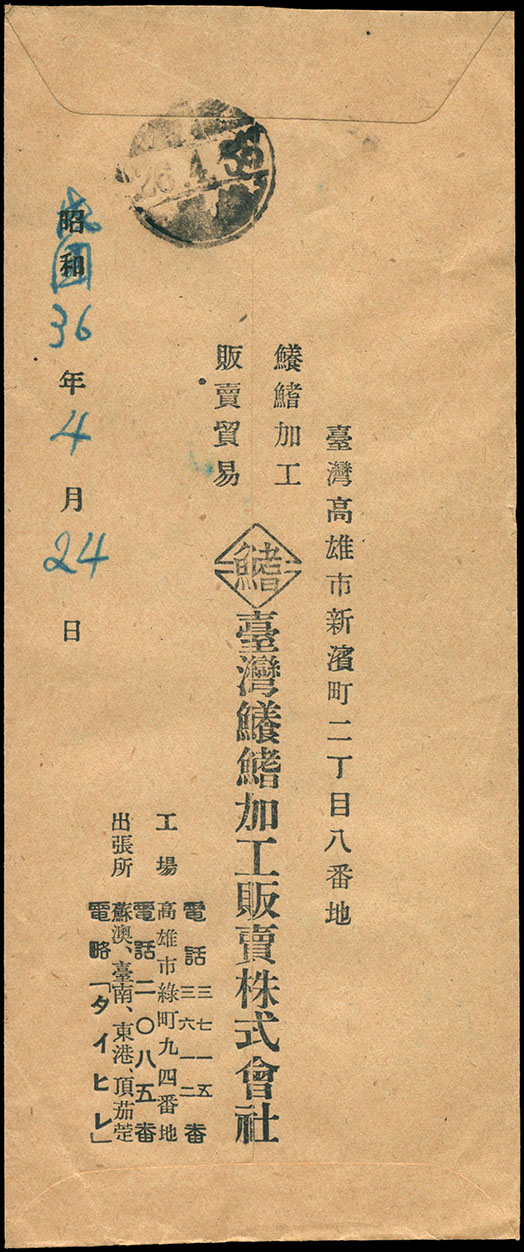 臺灣高雄市新濱町二丁目八番地
鱶鰭加工
販賣貿易
鰭
臺灣鱶鰭加工販賣株式會社
電話 三七一五 三六一二 番
工場 高雄市綠町九四番地
電話二〇八五番
出張所 蘇澳、臺南、東港、頂茄萣
電略「タイヒレ」
昭和 民國 36年4月24日